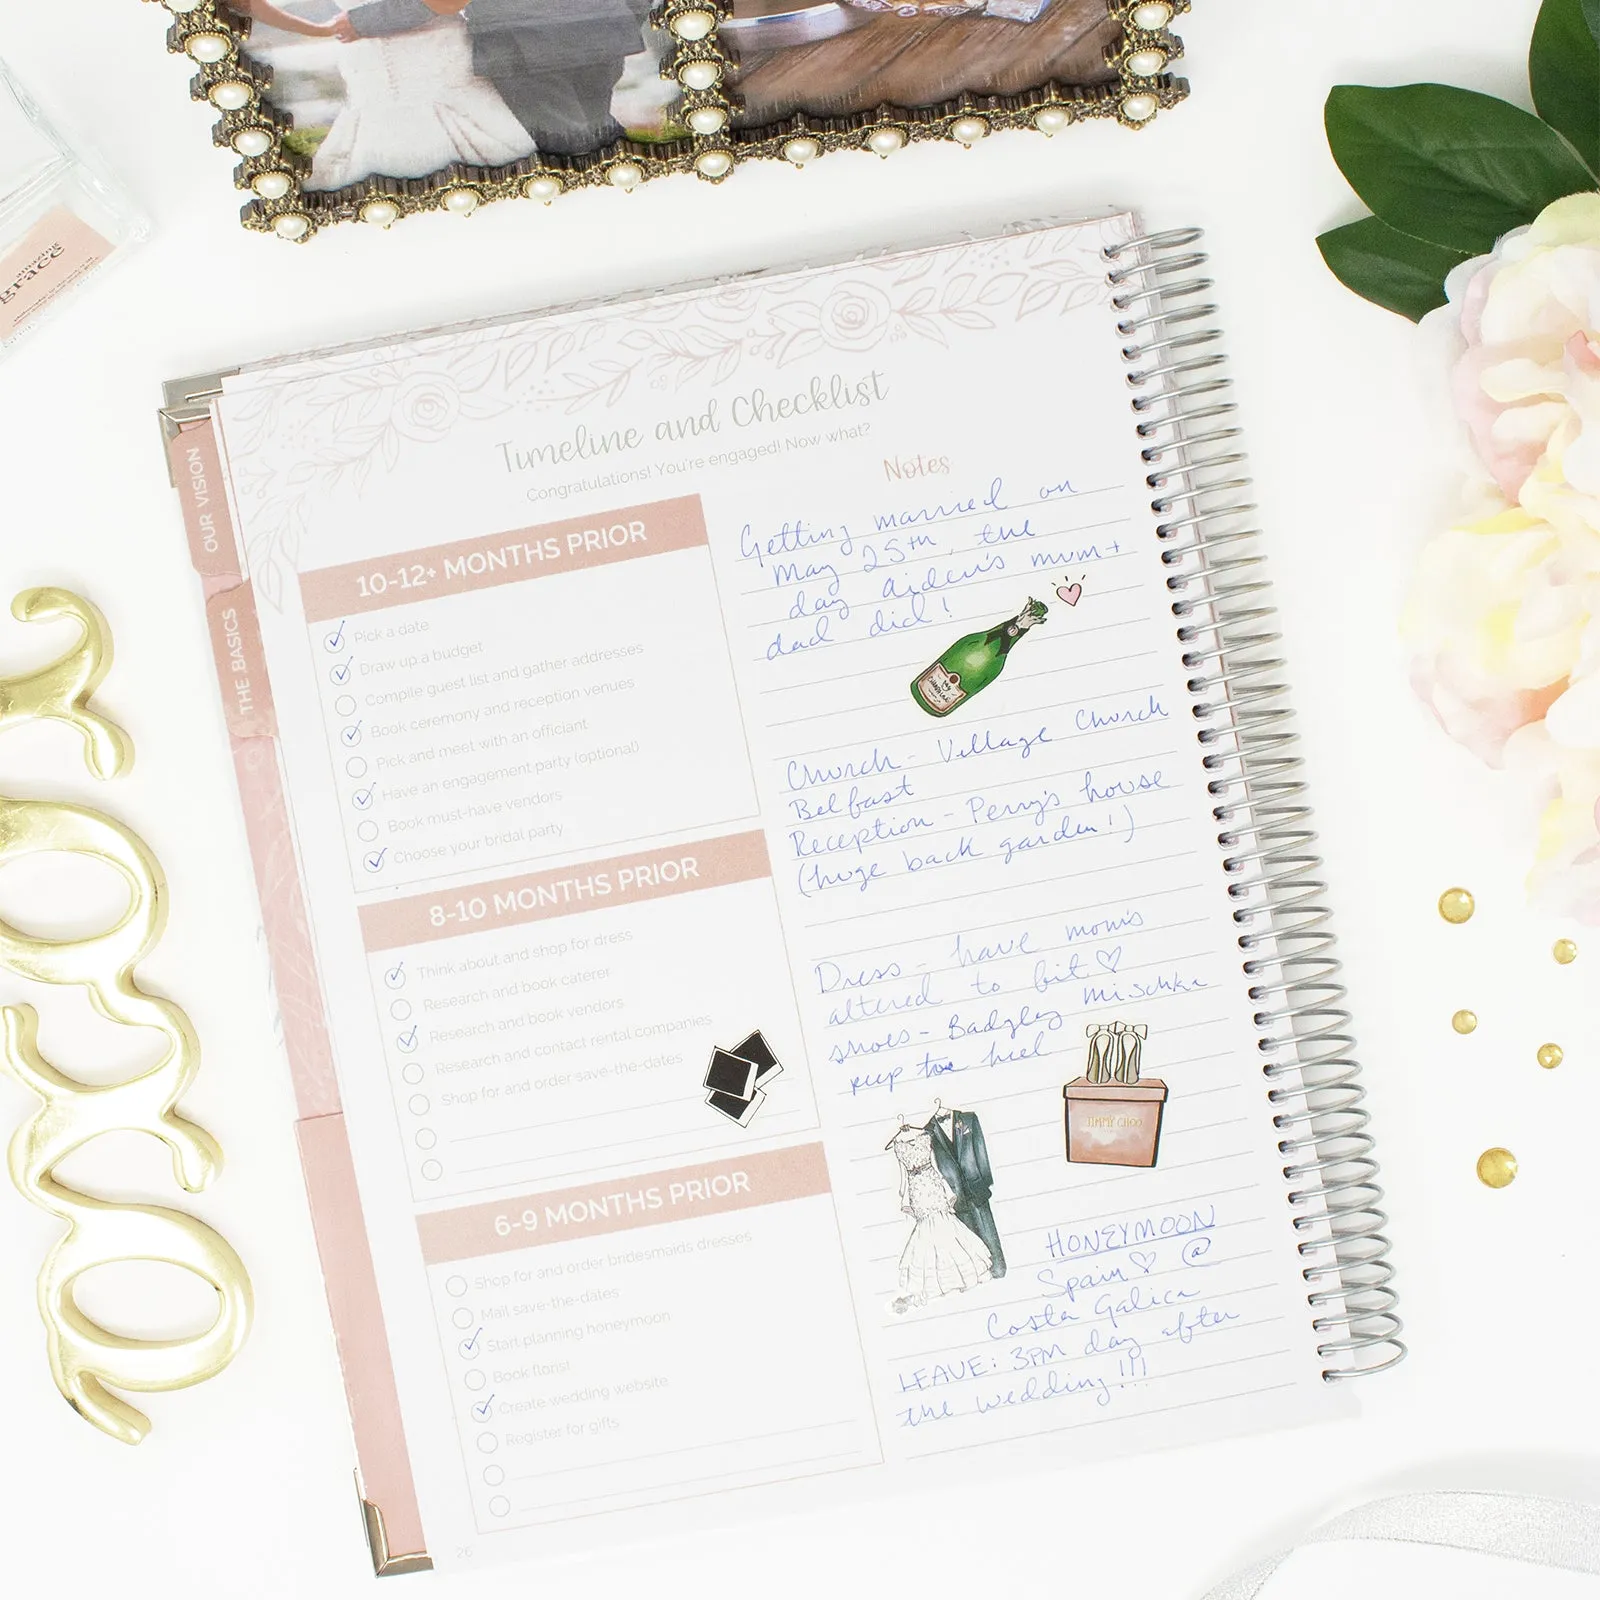 amazing
grace
OUR VISION
THE BASICS
Timeline and Checklist
Congratulations! You're engaged! Now what?
10-12+ MONTHS PRIOR
Pick a date
Draw up a budget
Compile guest list and gather addresses
Book ceremony and reception venues
Pick and meet with an officiant
Have an engagement party (optional)
Book must-have vendors
Choose your bridal party
8-10 MONTHS PRIOR
Think about and shop for dress
Research and book caterer
Research and book vendors
Research and contact rental companies
Shop for and order save-the-dates
6-9 MONTHS PRIOR
Shop for and order bridesmaids dresses
Mail save-the-dates
Start planning honeymoon
Book florist
Create wedding website
Register for gifts
26
Notes
Getting married on
May 25th, the
day Aiden's mum +
dad did!
Church - Village Church
Belfast
Reception - Perry's house
(huge back garden!)
Dress - have mom's
altered to fit ♡
shoes - Badgley Mischka
peep toe heel
JIMMY CHOO
HONEYMOON
Spain ♡ @
Costa Galica
LEAVE: 3PM day after
the wedding!!!
xoxo